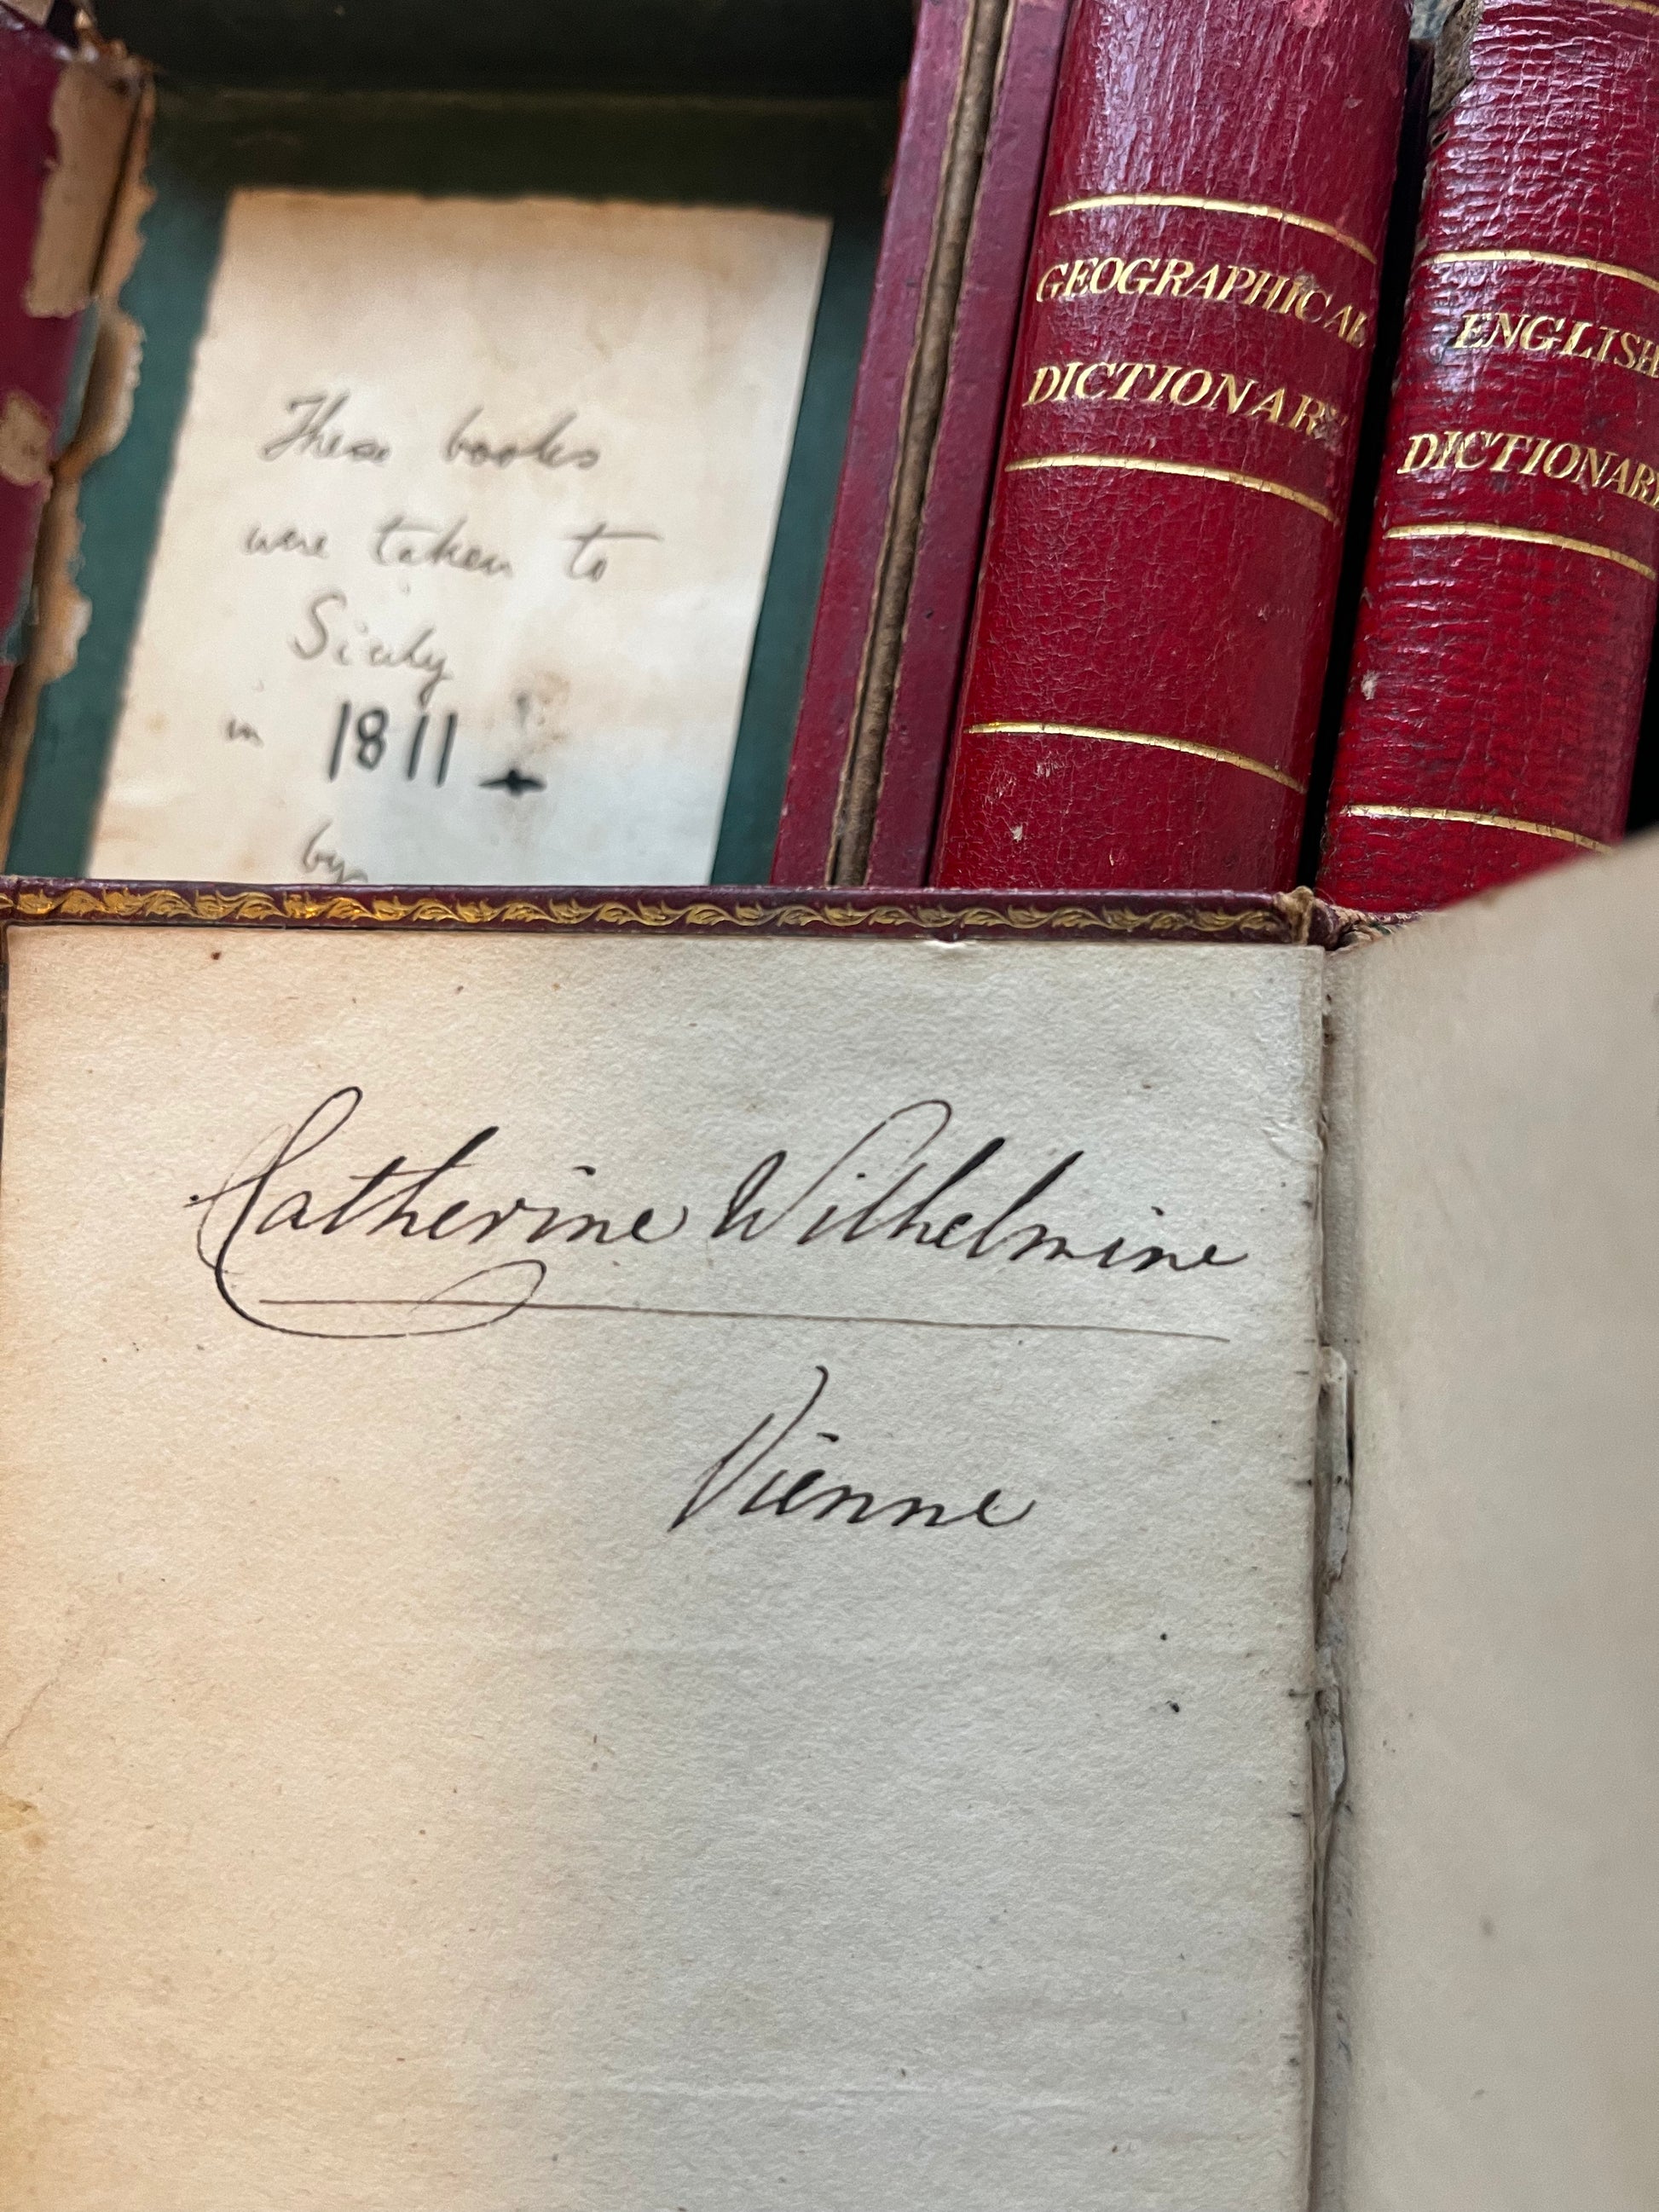 These books
were taken to
Sicily
in 1811
by
GEOGRAPHICAL
DICTIONARY
ENGLISH
DICTIONARY
Catherine Wilhelmine
Vienne